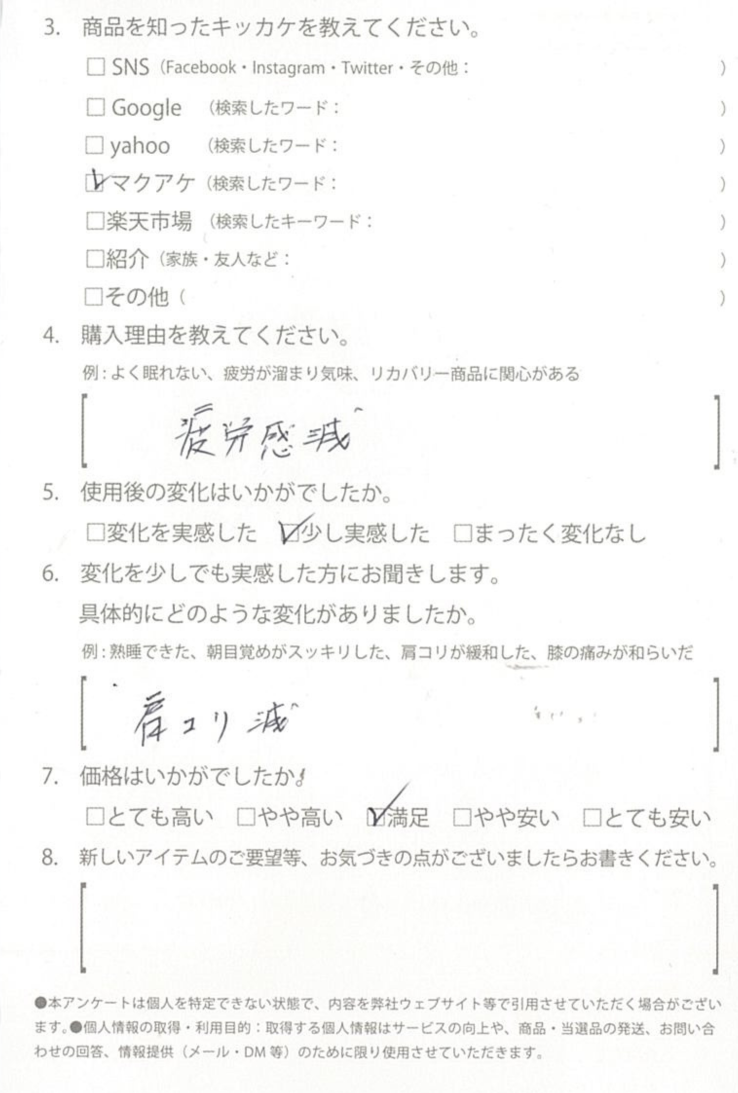 3. 商品を知ったキッカケを教えてください。
□ SNS（Facebook・Instagram・Twitter・その他： ）
□ Google （検索したワード： ）
□ yahoo （検索したワード： ）
☑マクアケ（検索したワード： ）
□楽天市場 （検索したキーワード： ）
□紹介（家族・友人など： ）
□その他（ ）
4. 購入理由を教えてください。
例：よく眠れない、疲労が溜まり気味、リカバリー商品に関心がある
疲労感減
5. 使用後の変化はいかがでしたか。
□変化を実感した ☑少し実感した □まったく変化なし
6. 変化を少しでも実感した方にお聞きします。
具体的にどのような変化がありましたか。
例：熟睡できた、朝目覚めがスッキリした、肩コリが緩和した、膝の痛みが和らいだ
肩コリ減
7. 価格はいかがでしたか。
□とても高い □やや高い ☑満足 □やや安い □とても安い
8. 新しいアイテムのご要望等、お気づきの点がございましたらお書きください。
●本アンケートは個人を特定できない状態で、内容を弊社ウェブサイト等で引用させていただく場合がござい
ます。●個人情報の取得・利用目的：取得する個人情報はサービスの向上や、商品・当選品の発送、お問い合
わせの回答、情報提供（メール・DM 等）のために限り使用させていただきます。